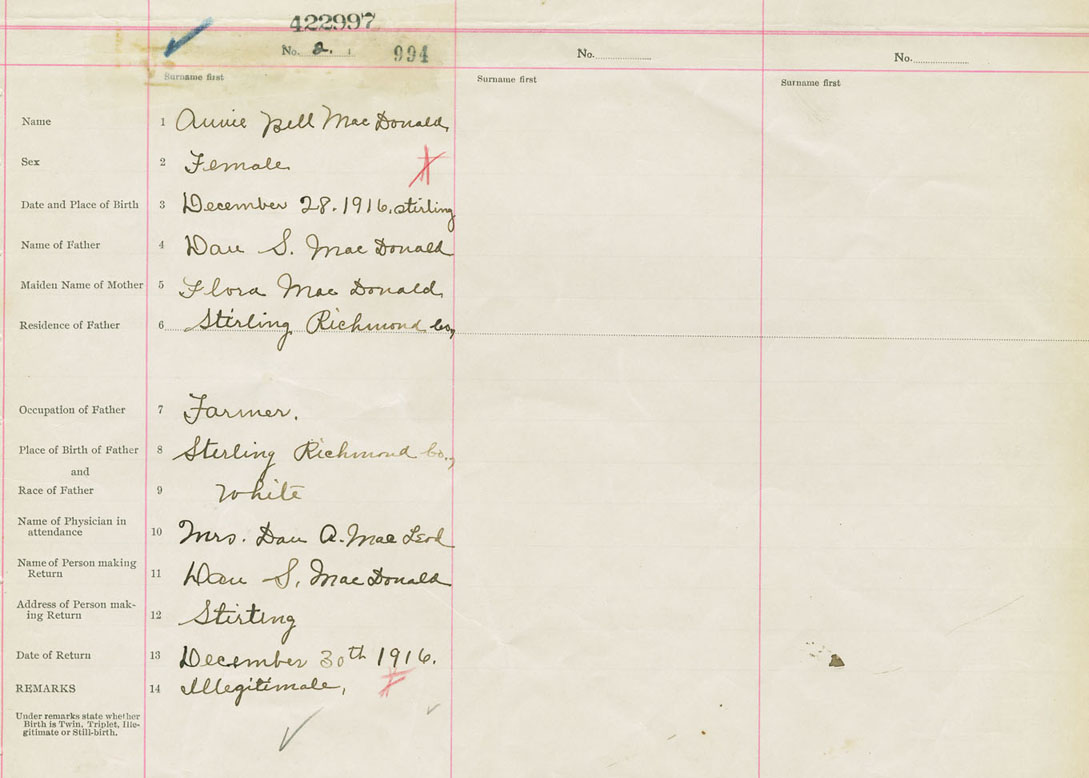 422997
No. 2. 994 No. No.
Surname first Surname first Surname first
Name 1 Annie Bell MacDonald
Sex 2 Female
Date and Place of Birth 3 December 28. 1916. Stirling
Name of Father 4 Dan S. MacDonald
Maiden Name of Mother 5 Flora MacDonald
Residence of Father 6 Stirling Richmond Co,
Occupation of Father 7 Farmer.
Place of Birth of Father 8 Sterling Richmond Co.,
and
Race of Father 9 White
Name of Physician in
attendance 10 Mrs. Dan A. MacLeod
Name of Person making
Return 11 Dan S. MacDonald
Address of Person mak-
ing Return 12 Stirting
Date of Return 13 December 30th 1916.
REMARKS 14 Illegitimate,
Under remarks state whether
Birth is Twin, Triplet, Ille-
gitimate or Still-birth.